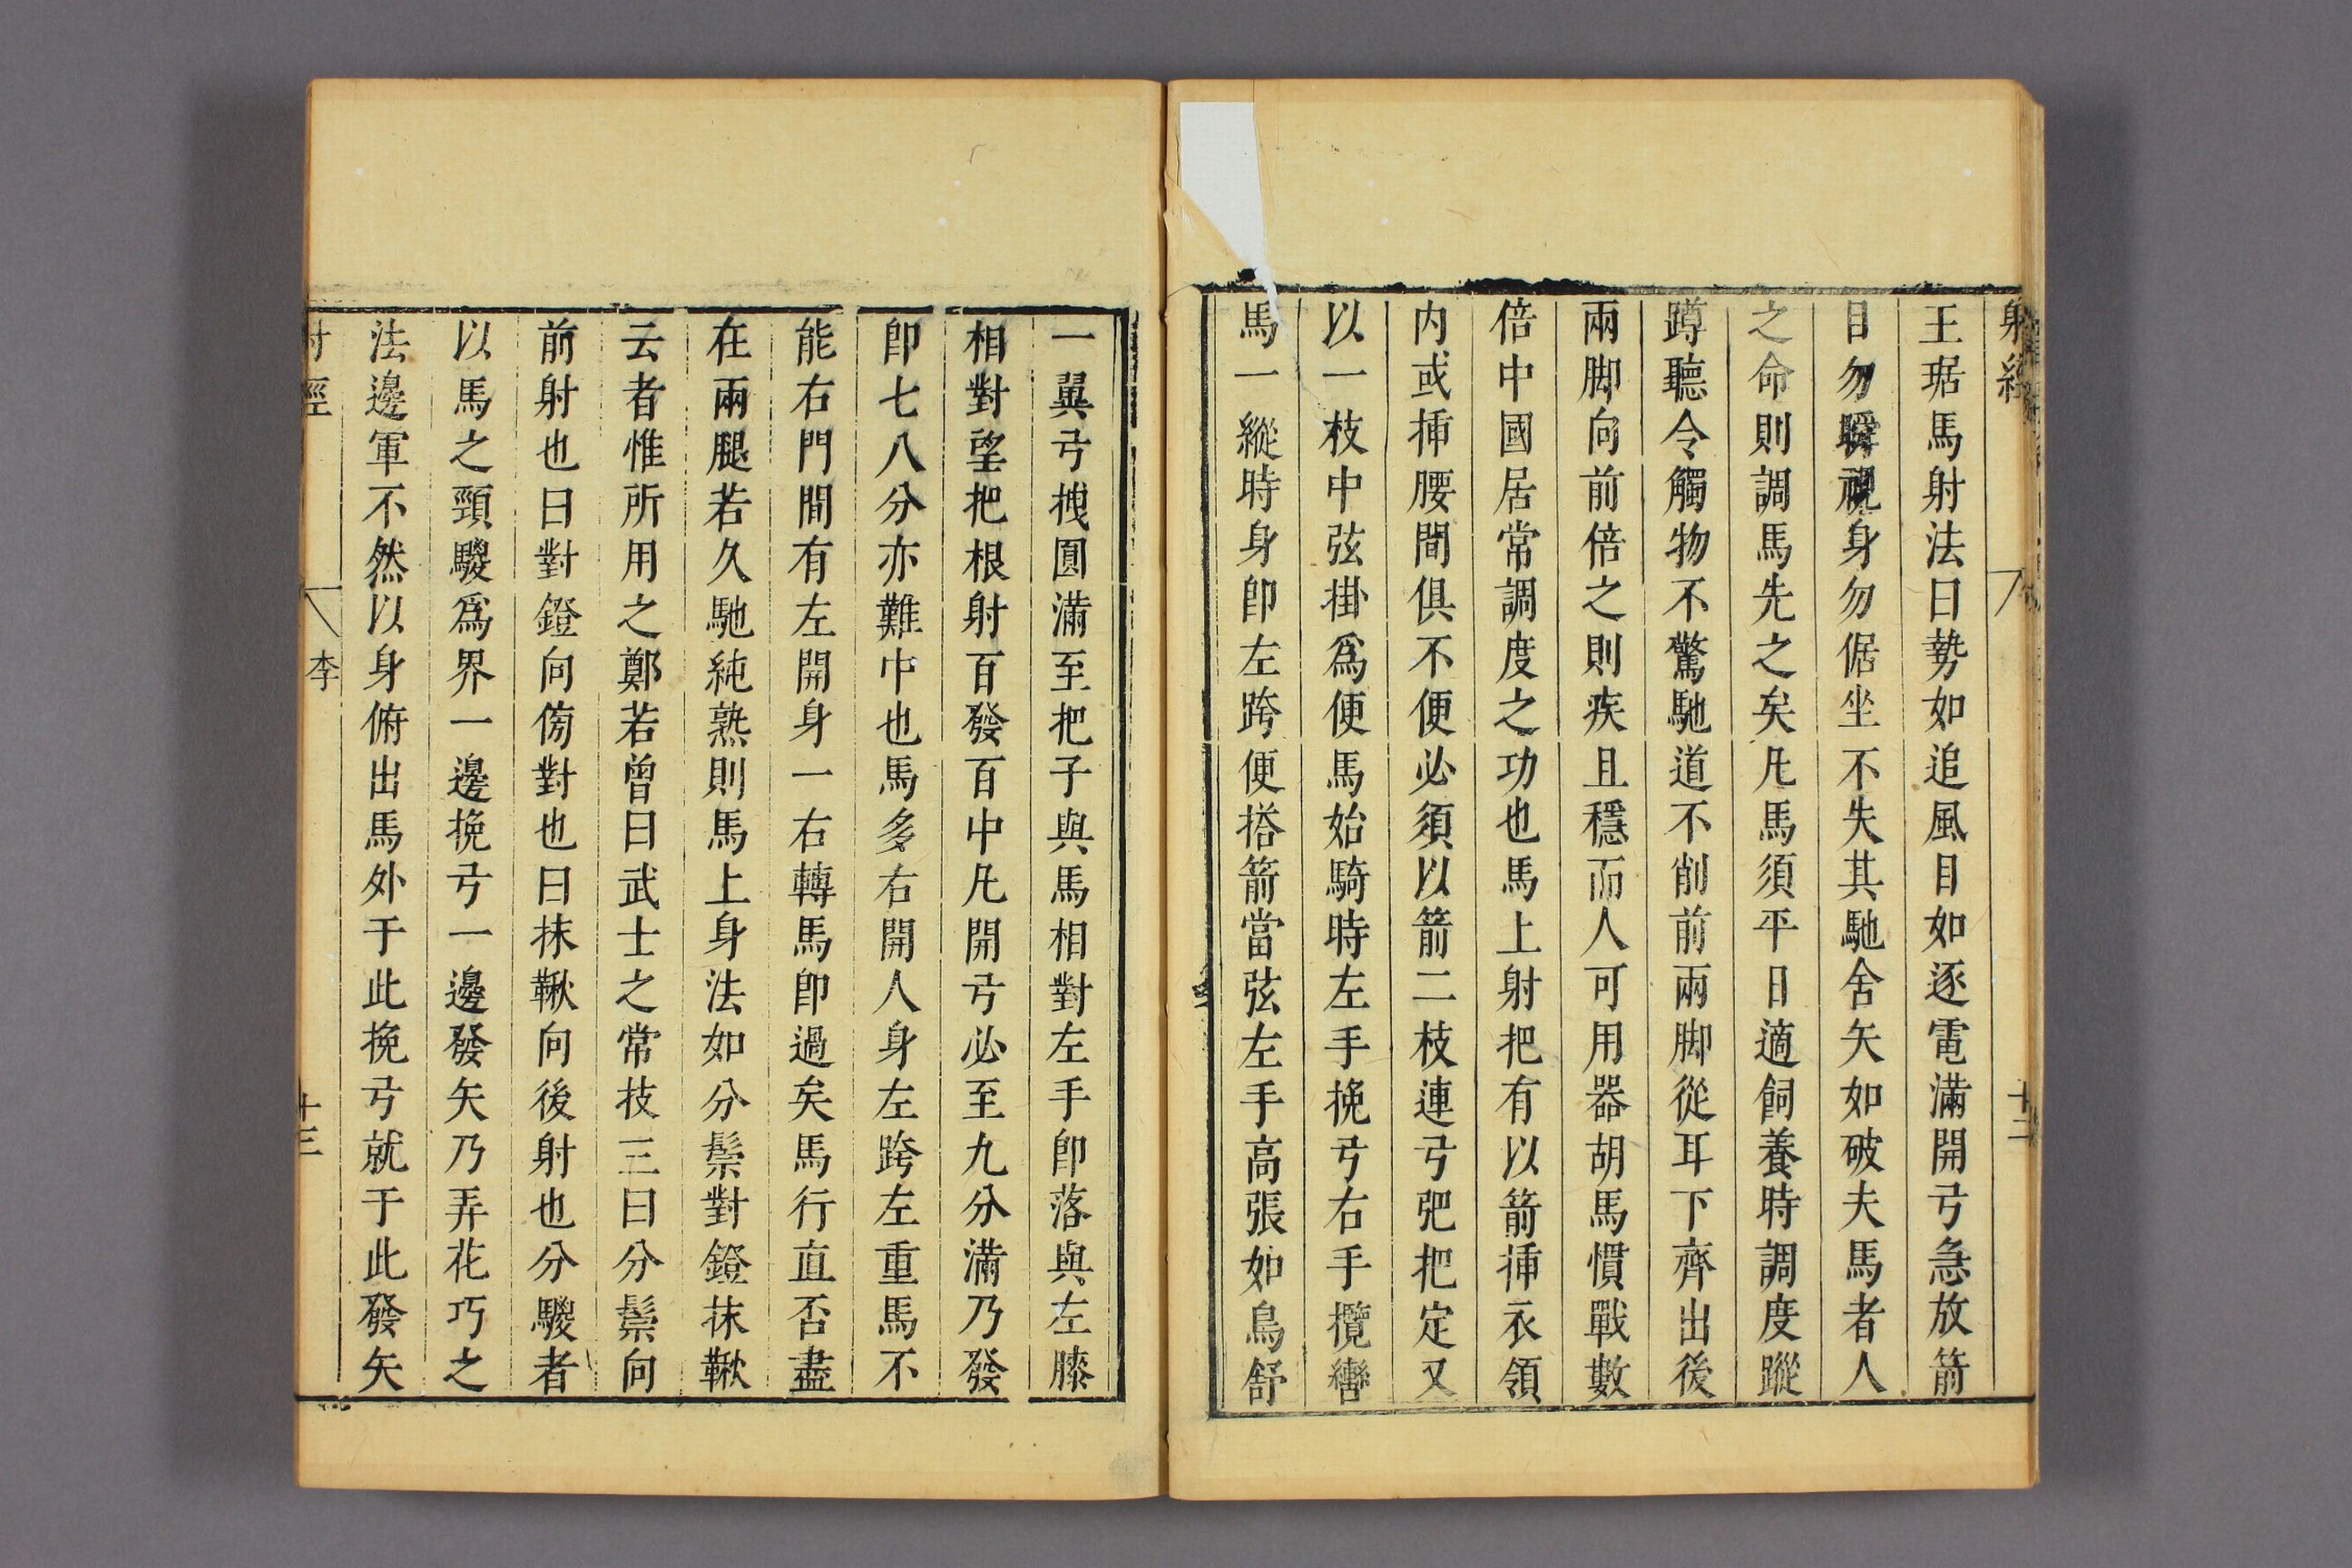 射經
十二
王琚馬射法曰勢如追風目如逐電滿開弓急放箭
目勿瞬視身勿倨坐不失其馳舍矢如破夫馬者人
之命則調馬先之矣凡馬須平日適飼養時調度蹤
蹲聽令觸物不驚馳道不削前兩脚從耳下齊出後
兩脚向前倍之則疾且穩而人可用器胡馬慣戰數
倍中國居常調度之功也馬上射把有以箭揷衣領
内或揷腰間俱不便必須以箭二枝連弓弝把定又
以一枝中弦掛爲便馬始騎時左手挽弓右手攬轡
馬一縱時身卽左跨便搭箭當弦左手高張如鳥舒
一翼弓拽圓滿至把子與馬相對左手卽落與左膝
相對望把根射百發百中凡開弓必至九分滿乃發
卽七八分亦難中也馬多右開人身左跨左重馬不
能右門間有左開身一右轉馬卽過矣馬行直否盡
在兩腿若久馳純熟則馬上身法如分鬃對鐙抹鞦
云者惟所用之鄭若曾曰武士之常技三曰分鬃向
前射也曰對鐙向傍對也曰抹鞦向後射也分騣者
以馬之頸騣爲界一邊挽弓一邊發矢乃弄花巧之
法邊軍不然以身俯出馬外于此挽弓就于此發矢
射經
李
十三